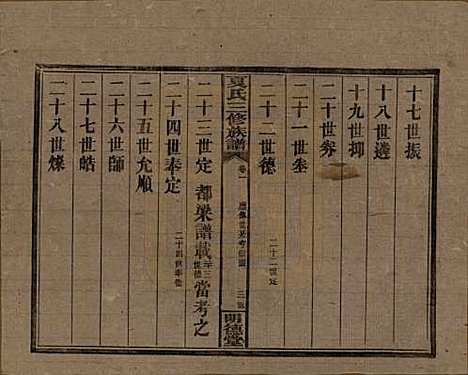 十七世振
十八世遴
十九世抑
二十世券
二十一世叁
二十二世德
二十二世廷
夏氏三修族譜
卷一
明德堂
二十三世定
都梁譜載
當考之
二十四世奉定
二十四世奉德
二十五世允順
二十六世師
二十七世皓
二十八世爍